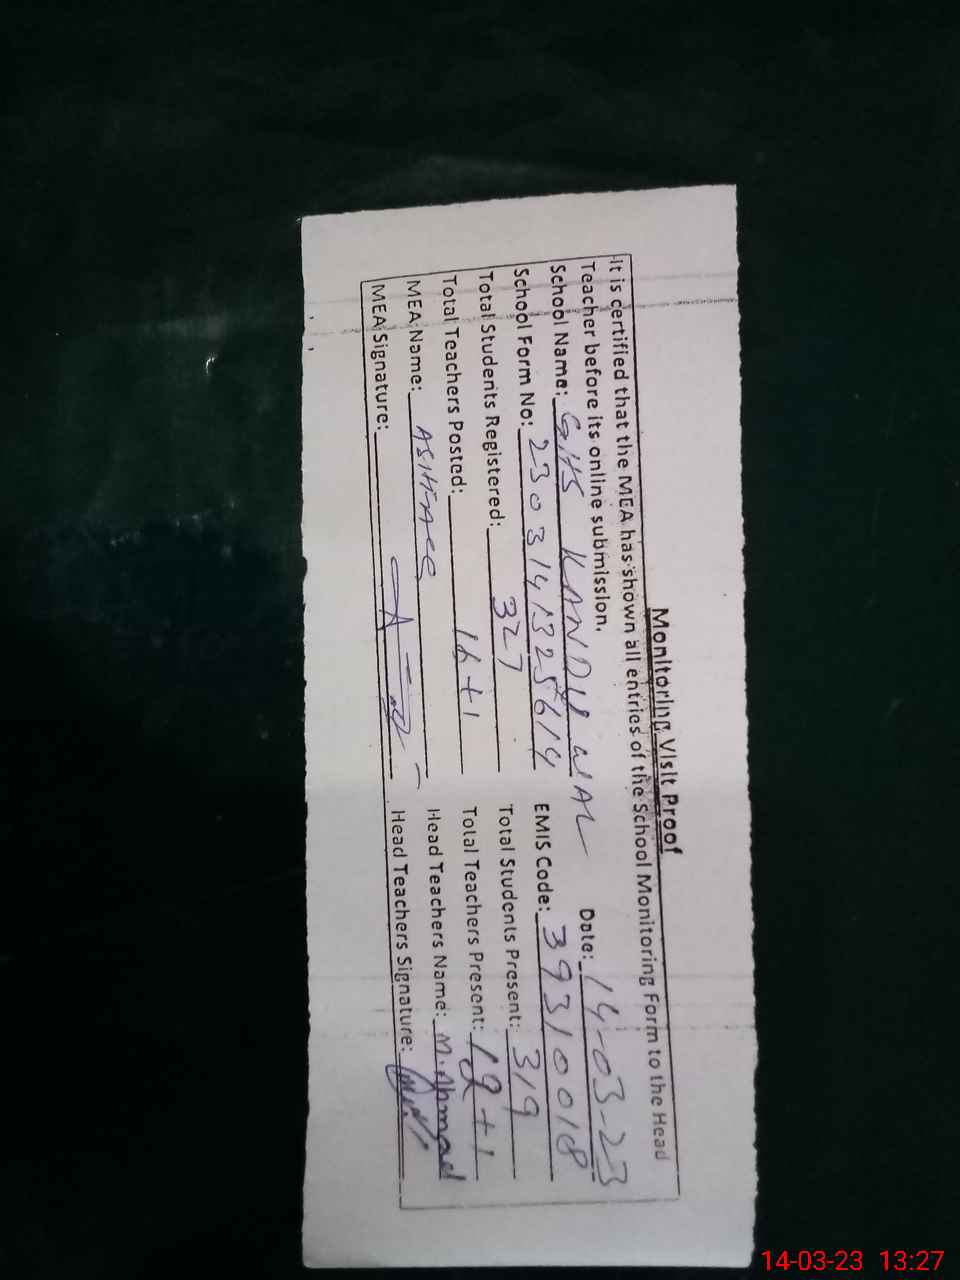 Monitoring Visit Proof
It is certified that the MEA has shown all entries of the School Monitoring Form to the Head
Teacher before its online submission.
School Name: GHS Date: 14-03-23
School Form No: 2303141325614 EMIS Code: 39310018
Total Students Registered: 327 Total Students Present: 319
Total Teachers Posted: Total Teachers Present:
MEA Name: Head Teachers Name: M. Ahmad
MEA Signature: Head Teachers Signature:
14-03-23 13:27